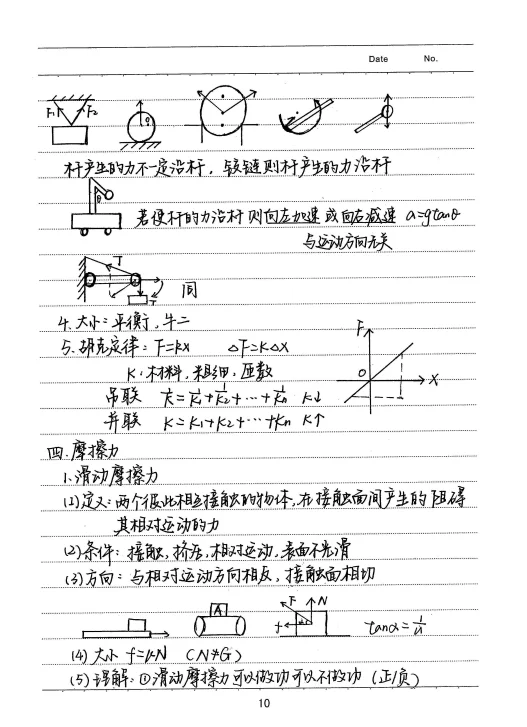 Date No.
F₁ F₂
杆产生的力不一定沿杆，铰链则杆产生的力沿杆
θ
若使杆的力沿杆则向左加速或向右减速 a=gtanθ
与运动方向无关
T
T
同
4.大小：平衡，牛二
5.胡克定律：F=kx △F=k△x
F
O
X
K：材料，粗细，匝数
串联 1/K=1/K1+1/K2+…+1/Kn K↓
并联 K=K1+K2+…+Kn K↑
四.摩擦力
1.滑动摩擦力
(1)定义：两个彼此相互接触的物体，在接触面间产生的阻碍
其相对运动的力
(2)条件：接触，挤压，相对运动，表面不光滑
(3)方向：与相对运动方向相反，接触面相切
A
F N
f
α
tanα=1/μ
(4)大小 f=μN （N≠G）
(5)理解：①滑动摩擦力可以做功可以不做功（正/负）
10